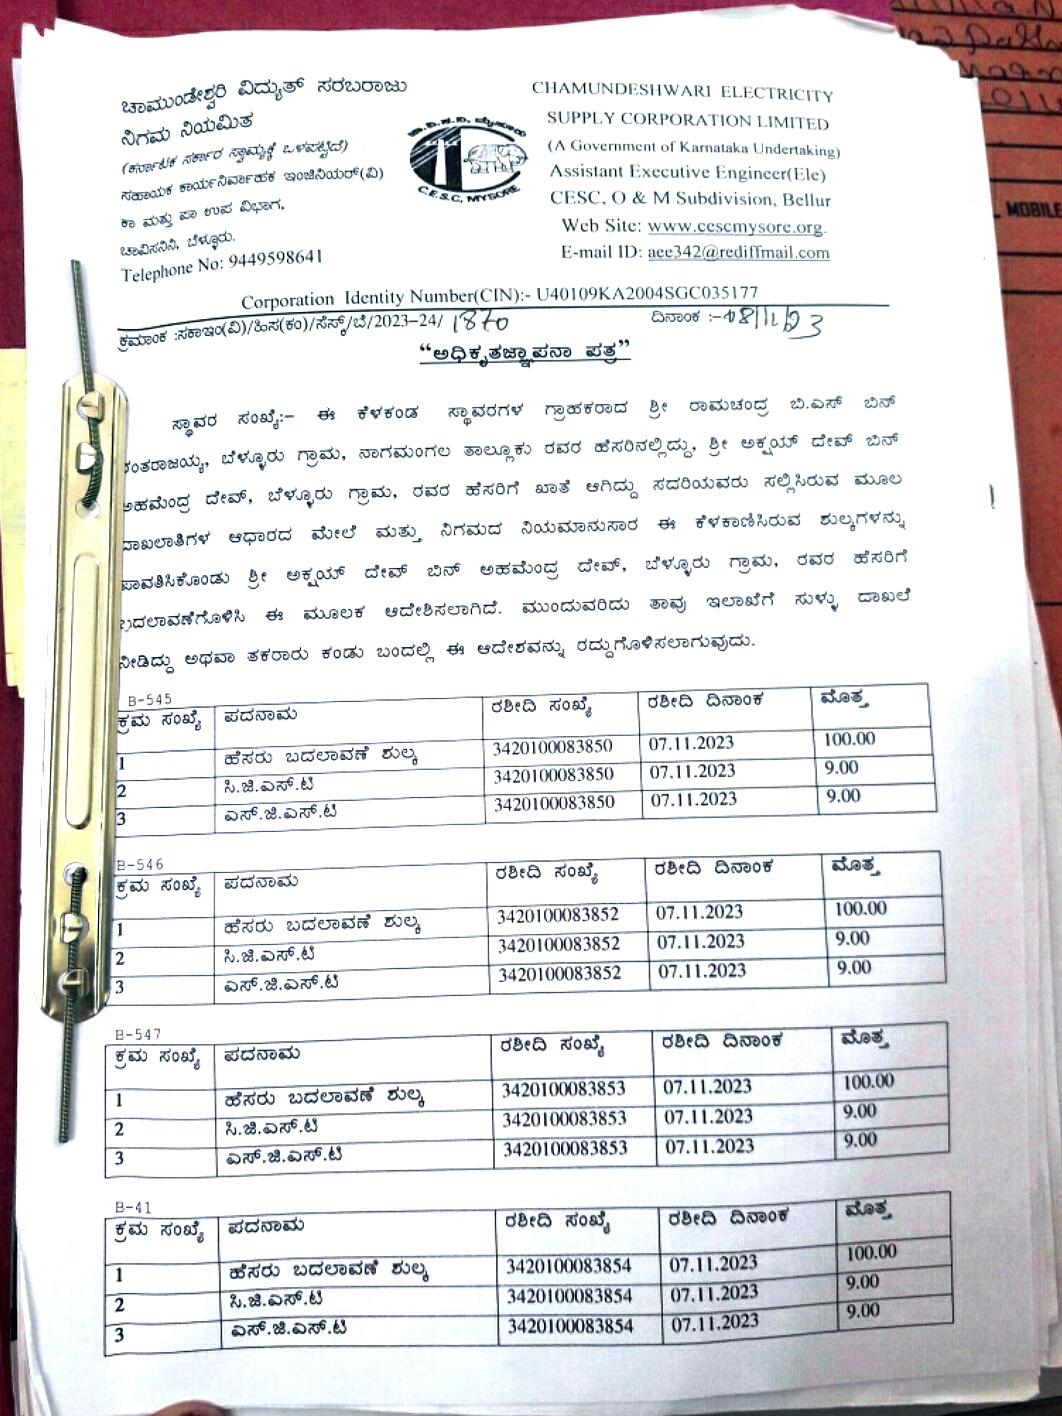 ಚಾಮುಂಡೇಶ್ವರಿ ವಿದ್ಯುತ್ ಸರಬರಾಜು
ನಿಗಮ ನಿಯಮಿತ
(ಕರ್ನಾಟಕ ಸರ್ಕಾರ ಸ್ವಾಮ್ಯಕ್ಕೆ ಒಳಪಟ್ಟಿದೆ)
ಸಹಾಯಕ ಕಾರ್ಯನಿರ್ವಾಹಕ ಇಂಜಿನಿಯರ್(ವಿ)
ಕಾ ಮತ್ತು ಪಾ ಉಪ ವಿಭಾಗ,
ಚಾವಿಸನಿನಿ, ಬೆಳ್ಳೂರು.
Telephone No: 9449598641
C.E.S.C, MYSORE
CHAMUNDESHWARI ELECTRICITY
SUPPLY CORPORATION LIMITED
(A Government of Karnataka Undertaking)
Assistant Executive Engineer(Ele)
CESC, O & M Subdivision, Bellur
Web Site: www.cescmysore.org.
E-mail ID: aee342@rediffmail.com
MOBILE
Corporation Identity Number(CIN):- U40109KA2004SGC035177
ಕ್ರಮಾಂಕ :ಸಕಾಇಂ(ವಿ)/ಹಿಸ(ಕಂ)/ಸೆಸ್ಕ್/ಬೆ/2023-24/ 1870 ದಿನಾಂಕ :-08/11/23
“ಅಧಿಕೃತಜ್ಞಾಪನಾ ಪತ್ರ”
ಸ್ಥಾವರ ಸಂಖ್ಯೆ:- ಈ ಕೆಳಕಂಡ ಸ್ಥಾವರಗಳ ಗ್ರಾಹಕರಾದ ಶ್ರೀ ರಾಮಚಂದ್ರ ಬಿ.ಎಸ್ ಬಿನ್
ಕಂತರಾಜಯ್ಯ, ಬೆಳ್ಳೂರು ಗ್ರಾಮ, ನಾಗಮಂಗಲ ತಾಲ್ಲೂಕು ರವರ ಹೆಸರಿನಲ್ಲಿದ್ದು, ಶ್ರೀ ಅಕ್ಷಯ್ ದೇವ್ ಬಿನ್
ಅಹಮೆಂದ್ರ ದೇವ್, ಬೆಳ್ಳೂರು ಗ್ರಾಮ, ರವರ ಹೆಸರಿಗೆ ಖಾತೆ ಆಗಿದ್ದು ಸದರಿಯವರು ಸಲ್ಲಿಸಿರುವ ಮೂಲ
ದಾಖಲಾತಿಗಳ ಆಧಾರದ ಮೇಲೆ ಮತ್ತು ನಿಗಮದ ನಿಯಮಾನುಸಾರ ಈ ಕೆಳಕಾಣಿಸಿರುವ ಶುಲ್ಕಗಳನ್ನು
ಪಾವತಿಸಿಕೊಂಡು ಶ್ರೀ ಅಕ್ಷಯ್ ದೇವ್ ಬಿನ್ ಅಹಮೆಂದ್ರ ದೇವ್, ಬೆಳ್ಳೂರು ಗ್ರಾಮ, ರವರ ಹೆಸರಿಗೆ
ಬದಲಾವಣೆಗೊಳಿಸಿ ಈ ಮೂಲಕ ಆದೇಶಿಸಲಾಗಿದೆ. ಮುಂದುವರಿದು ತಾವು ಇಲಾಖೆಗೆ ಸುಳ್ಳು ದಾಖಲೆ
ನೀಡಿದ್ದು ಅಥವಾ ತಕರಾರು ಕಂಡು ಬಂದಲ್ಲಿ ಈ ಆದೇಶವನ್ನು ರದ್ದುಗೊಳಿಸಲಾಗುವುದು.
B-545
ಕ್ರಮ ಸಂಖ್ಯೆ ಪದನಾಮ ರಶೀದಿ ಸಂಖ್ಯೆ ರಶೀದಿ ದಿನಾಂಕ ಮೊತ್ತ
1 ಹೆಸರು ಬದಲಾವಣೆ ಶುಲ್ಕ 3420100083850 07.11.2023 100.00
2 ಸಿ.ಜಿ.ಎಸ್.ಟಿ 3420100083850 07.11.2023 9.00
3 ಎಸ್.ಜಿ.ಎಸ್.ಟಿ 3420100083850 07.11.2023 9.00
B-546
ಕ್ರಮ ಸಂಖ್ಯೆ ಪದನಾಮ ರಶೀದಿ ಸಂಖ್ಯೆ ರಶೀದಿ ದಿನಾಂಕ ಮೊತ್ತ
1 ಹೆಸರು ಬದಲಾವಣೆ ಶುಲ್ಕ 3420100083852 07.11.2023 100.00
2 ಸಿ.ಜಿ.ಎಸ್.ಟಿ 3420100083852 07.11.2023 9.00
3 ಎಸ್.ಜಿ.ಎಸ್.ಟಿ 3420100083852 07.11.2023 9.00
B-547
ಕ್ರಮ ಸಂಖ್ಯೆ ಪದನಾಮ ರಶೀದಿ ಸಂಖ್ಯೆ ರಶೀದಿ ದಿನಾಂಕ ಮೊತ್ತ
1 ಹೆಸರು ಬದಲಾವಣೆ ಶುಲ್ಕ 3420100083853 07.11.2023 100.00
2 ಸಿ.ಜಿ.ಎಸ್.ಟಿ 3420100083853 07.11.2023 9.00
3 ಎಸ್.ಜಿ.ಎಸ್.ಟಿ 3420100083853 07.11.2023 9.00
B-41
ಕ್ರಮ ಸಂಖ್ಯೆ ಪದನಾಮ ರಶೀದಿ ಸಂಖ್ಯೆ ರಶೀದಿ ದಿನಾಂಕ ಮೊತ್ತ
1 ಹೆಸರು ಬದಲಾವಣೆ ಶುಲ್ಕ 3420100083854 07.11.2023 100.00
2 ಸಿ.ಜಿ.ಎಸ್.ಟಿ 3420100083854 07.11.2023 9.00
3 ಎಸ್.ಜಿ.ಎಸ್.ಟಿ 3420100083854 07.11.2023 9.00